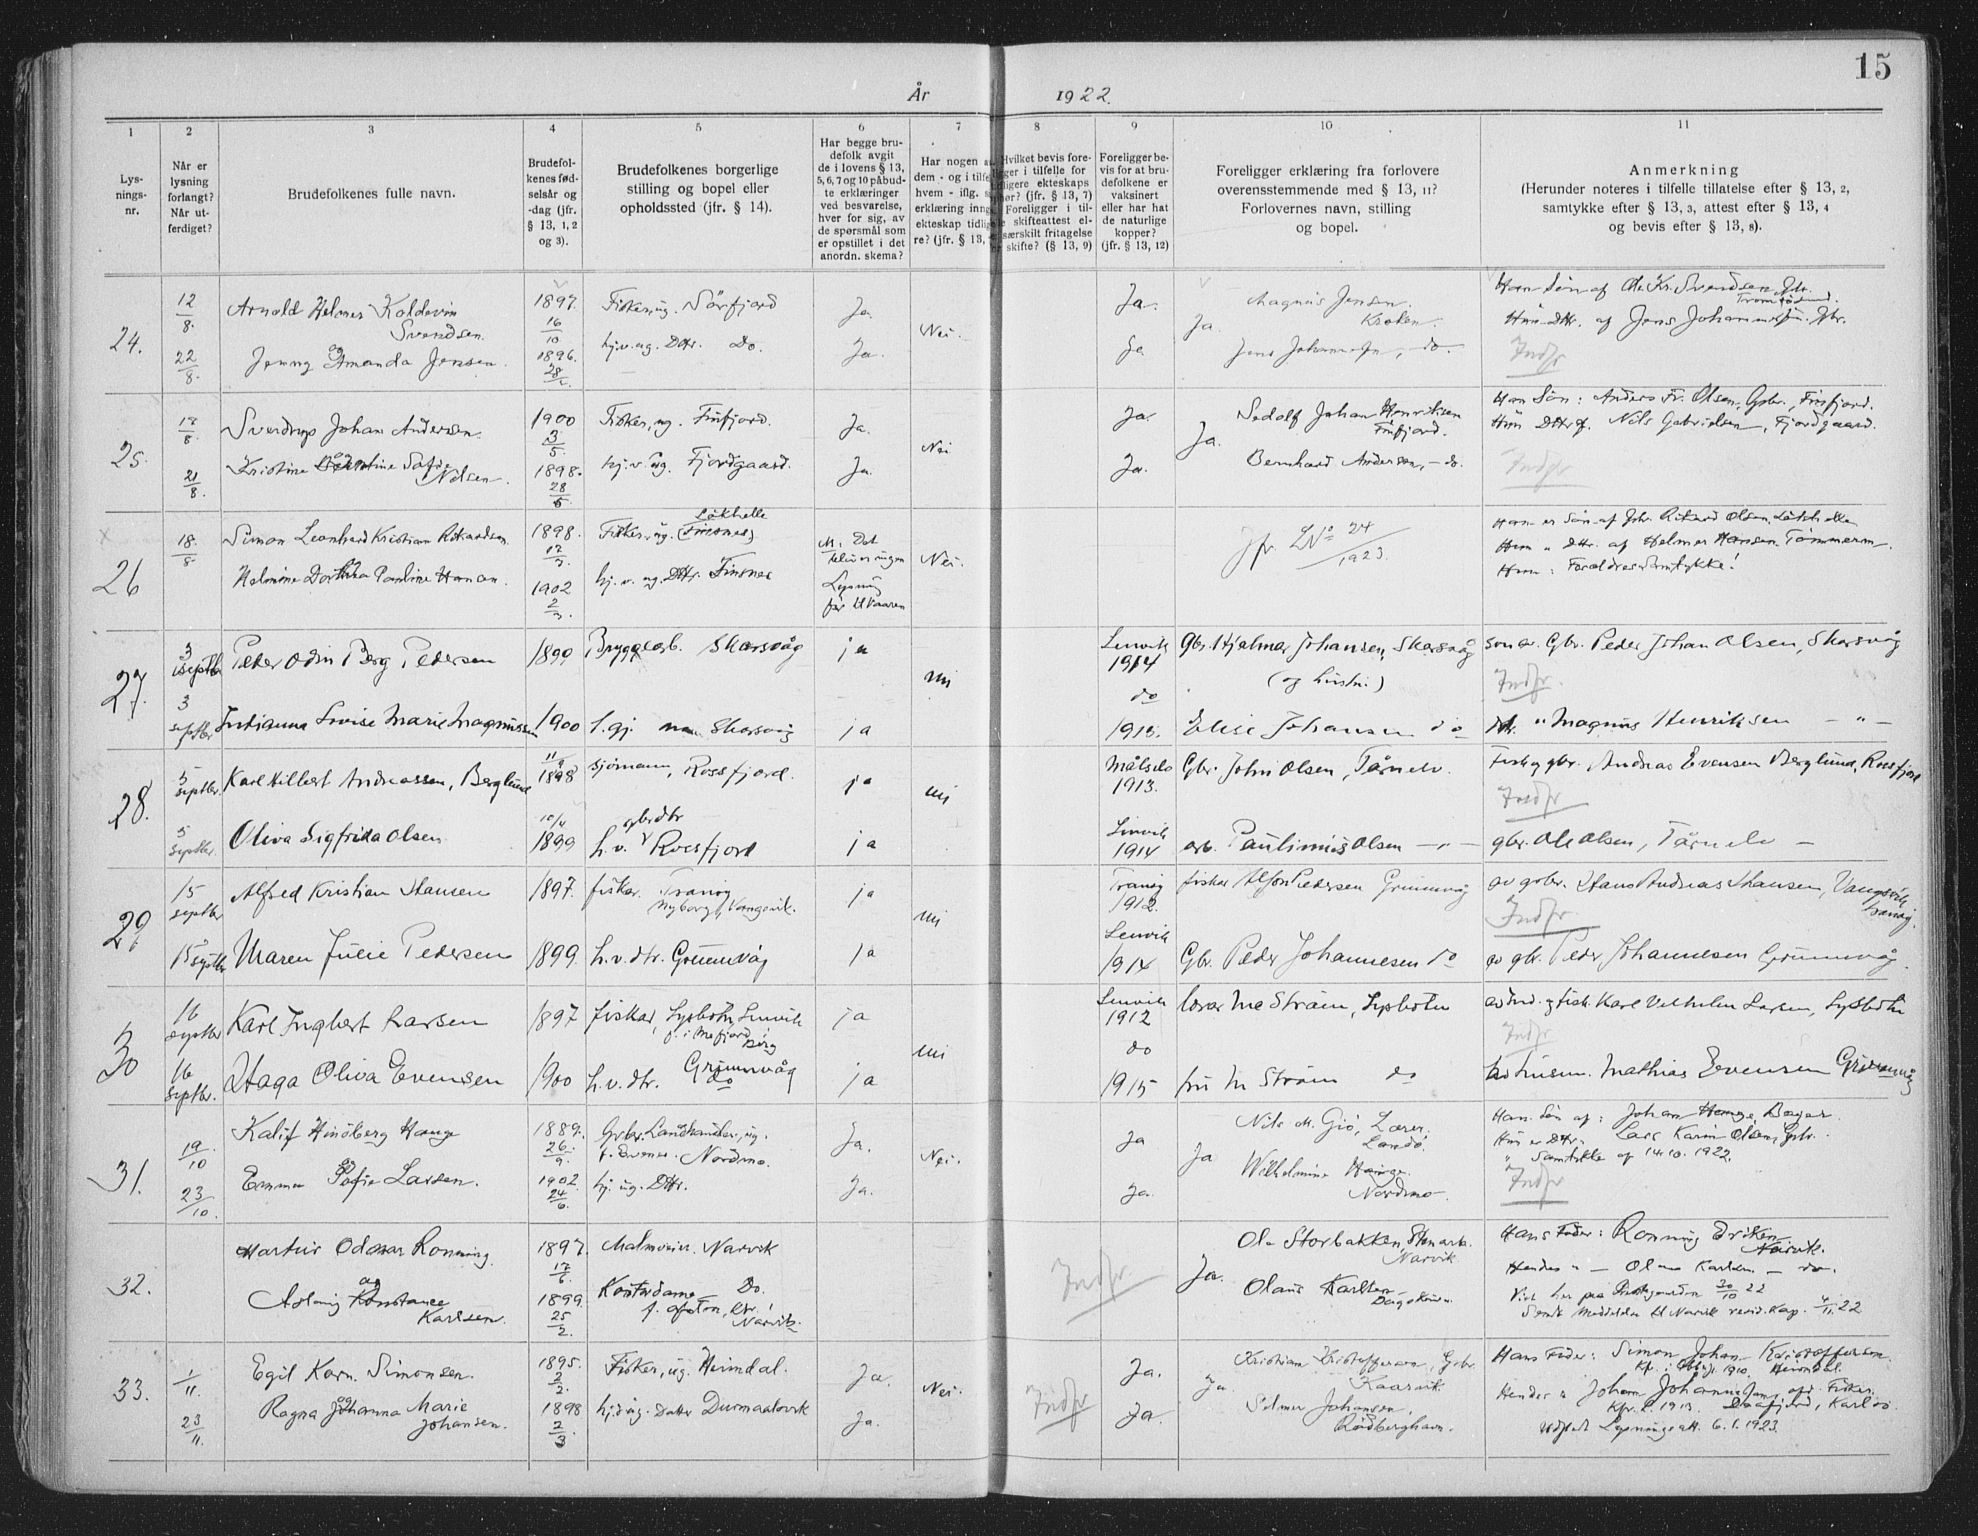 15
År 1922.
1 2 3 4 5 6 7 8 9 10 11
Lys-
nings-
nr.
Når er
lysning
forlangt?
Når ut-
ferdiget?
Brudefolkenes fulle navn.
Brudefol-
kenes fød-
selsår og
-dag (jfr.
§ 13, 1, 2
og 3).
Brudefolkenes borgerlige
stilling og bopel eller
opholdssted (jfr. § 14).
Har begge bru-
defolk avgit
de i lovens § 13,
5, 6, 7 og 10 påbud-
te erklæringer
ved besvarelse,
hver for sig, av
de spørsmål som
er opstillet i det
anordn. skema?
Har nogen a
dem - og i tilfe
hvem - iflg. s
erklæring inng
ekteskap tidlig
re? (jfr. § 13,
Hvilket bevis fore-
ger i tilfelle for
ligere ekteskaps
hør? (jfr. § 13, 7)
Foreligger i til-
le skifteattest el-
særskilt fritagelse
skifte? (§ 13, 9)
Foreligger be-
vis for at bru-
defolkene er
vaksinert
eller har hat
de naturlige
kopper?
(jfr. § 13, 12)
Foreligger erklæring fra forlovere
overensstemmende med § 13, 11?
Forlovernes navn, stilling
og bopel.
Anmerkning
(Herunder noteres i tilfelle tillatelse efter § 13, 2,
samtykke efter § 13, 3, attest efter § 13, 4
og bevis efter § 13, 8).
24.
12/8.
22/8.
Arnold Helmer Koldevin
Svendsen
Jenny Amanda Jensen.
1897.
16/10
1896.
Fisker, ug. Sörfjord
hj.v. ug. Dttr. Do.
Ja.
Ja.
Nei.
Ja.
Ja
Ja.
Magnus Jensen.
Kroken.
Jens Johannesen, do.
Han Søn af Ole Kr. Svendsen, Gbr.
Hun Dttr. af Jens Johannesen, Gbr.
Indfr
25.
18/8.
21/8.
Sverdrup Johan Andersen.
Kristine Sofie
Nilsen.
1900
3/5
1898.
28/5.
Fisker, ug. Finfjord.
hj.v. ug. Fjordgaard.
Ja.
Ja.
Nei
Ja.
Ja.
Ja.
Sedolf Johan Henriksen
Finfjord.
Bernhard Andersen, - do.
Han Søn: Anders Fr. Olsen, Gbr., Finfjord.
Hun Dttr. af Nils Gabrielsen, Fjordgaard.
Indfr
26
18./8
Simon Leonhard Kristian Rikardsen
Helmine Dorthea Pauline Hansen.
1898.
1902
2/3.
Fisker, ug. (Finsnes)
Løkhelle
hj. v. ug. Dttr. Finsnes
Lysning
før til Vaaren
Nei.
Jfr. LNo 24/1923.
Han er Søn af Gbr. Rikard Olsen, Løkhelle
Hun " Dttr. af Helmer Hansen, Tømmerm.
Hun: Forældresamtykke!
27.
3
septbr
3
septbr
Peder Odin Berg Pedersen
Louise Marie Magnussen
1899
1900
Bryggearb. Skarsvåg
Skarsvåg
ja
ja
nei
Lenvik
1914
do
1913.
Gbr. Hjalmar Johansen, Skarsvåg
(og hustru)
Elise Johansen do
søn av Gbr. Peder Johan Olsen, Skarsvåg
Indfr.
dtr. " Magnus Henriksen - " -
28.
5
septbr.
5
septbr.
Karl Hilbert Andreassen, Berglund
Oliva Sigfrida Olsen
11/9
1898
10/4
1899
sjømann, Rossfjord.
gbrdtr
h.v. Rossfjord
ja
ja
nei
Målselv
1913.
Lenvik
1914
Gbr. John Olsen, Tårnelv.
arb. Paulinius Olsen - " -
Fisk og gbr. Andreas Evensen Berglund, Rossfjord
Indfr
gbr. Ole Olsen, Tårnelv -
29
15
septbr
15 septbr
Alfred Kristian Hansen
Maren Julie Pedersen
1897.
1899.
fisker. Tranøy
Nyborg, Vangsvik.
h.v. dtr. Grunnvåg
ja
ja
nei
Tranøy
1912.
Lenvik
1914
fisker Alfon Pedersen Grunnvåg
Gbr. Peder Johannesen do
av gbr. Hans Andreas Hansen, Vangsvik
Tranøy.
Indfr
av gbr. Peder Johannesen Grunnvåg.
30
16
septbr
16
septbr.
Karl Ingbert Larsen
Haga Oliva Evensen
1897
1900
fisker, Lysbotn Lenvik
f. i Mefjord
Berg
h.v. dtr. Grunnvåg
do
ja
ja
nei
Lenvik
1912
do
1915
lærer M Strøm, Lysbotn
fru M Strøm do
av Ind. og fisk. Karl Vilhelm Larsen, Lysbotn
Indfr
av husm. Mathias Evensen Grunnvåg
31.
19/10
23/10.
Kalif Hinsberg Hauge
Emma Sofie Larsen.
1889.
26./9.
1902.
24/6.
Gbr. Landhandler, ug.
f. Evenes. Nordmo.
hj. ug. Dttr.
Ja.
Ja.
Nei.
Ja
Ja.
Ja
Nils M. Giö, Lærer.
Wilhelmine Hauge.
Nordmo.
Han Søn af: Johan Hauge,
Hun er Dttr. Lars Karin Olsen, Gbr.
" Samtykke af 14.10.1922.
Indfr
32.
Hartvig Odmar Ronning.
Aslaug Konstance
Karlsen.
1897.
17/6.
1899.
25/2.
Malmveier. Narvik
Kontordame Do.
Narvik
Indfr
Ja.
Ole Storbakken, Stenarb.
Narvik.
Olaus Karlsen
Hans Fader: Ronning Eriksen
Narvik.
Hendes " - Olaus Karlsen - do.
Viet her paa Prestegaarden 30/10 22
Sendt Meddelelse til Narvik resid. Kap. 4/11. 22
33.
1/11.
23/11.
Egil Korn. Simonsen.
Ragna Johanna Marie
Johansen.
1895.
2/2.
1898
2/3
Fisker, ug. Heimdal.
hj. ug. Datter Durmaalsvik
Ja.
Ja.
Nei.
Indfr
Ja.
Ja.
Ja.
Kristian Kristoffersen, Gbr.
Kaarvik.
Selmer Johansen,
Rødberghavn.
Hans Fader: Simon Johan Kristoffersen.
Heimdal.
Hendes " Johan Johannesen, Fisker.
Kfr. 1913. Karlsö
Utfærd. Lysningsatt. 6.1.1923.